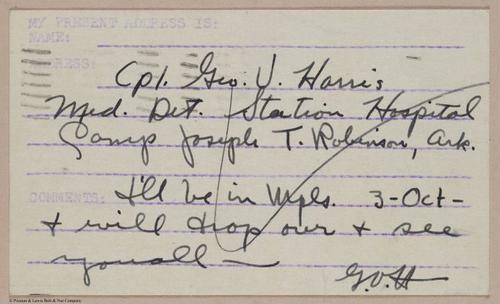 MY PRESENT ADDRESS IS:
NAME:
ADDRESS:
Cpl. Geo. V. Harris
Med. Det. Station Hospital
Camp Joseph T. Robinson, Ark.
COMMENTS: I'll be in Mpls. 3-Oct-
+ will drop over + see
you all —
G.V.H
© Preston & Lewis Bolt & Nut Company